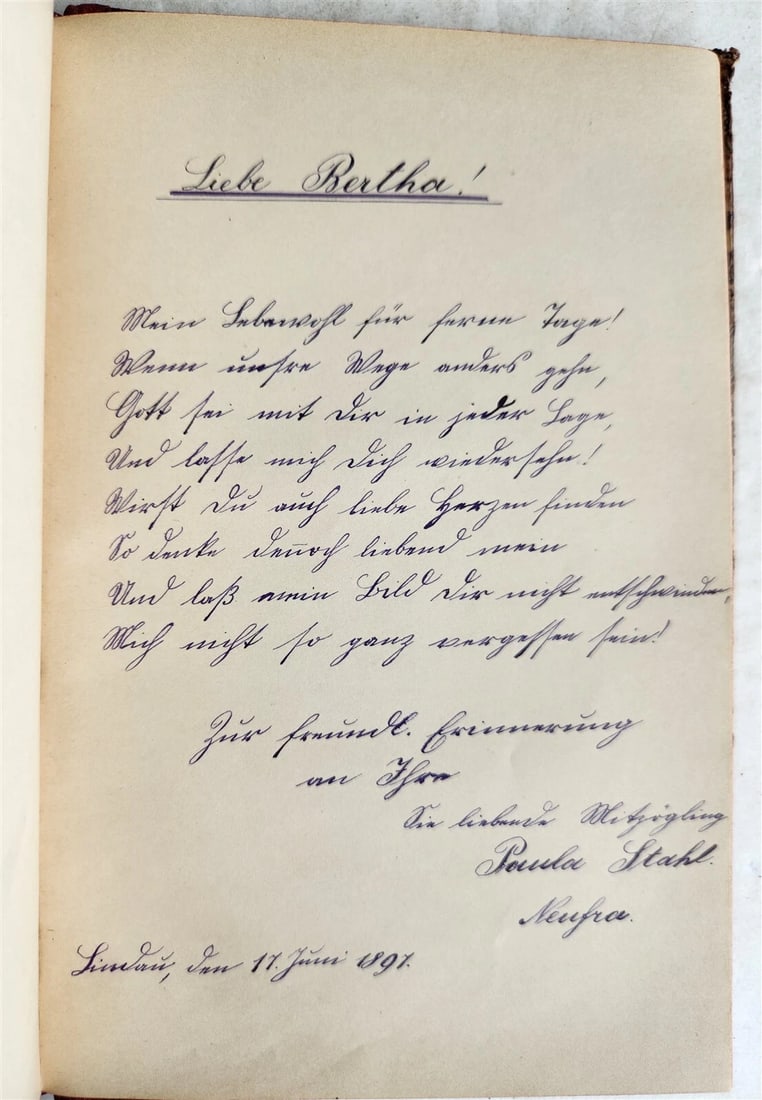 Liebe Bertha!
Mein Lebewohl für ferne Tage!
Wenn unsre Wege anders gehn,
Gott sei mit Dir in jeder Lage,
Und lasse mich Dich wiedersehn!
Wirst Du auch liebe Herzen finden
So denke dennoch liebend mein
Und laß mein Bild Dir nicht entschwinden,
Mich nicht so ganz vergessen sein!
Zur freundl. Erinnerung
an Ihre
Sie liebende Mitzögling
Paula Stahl.
Neufra.
Lindau, den 17. Juni 1897.